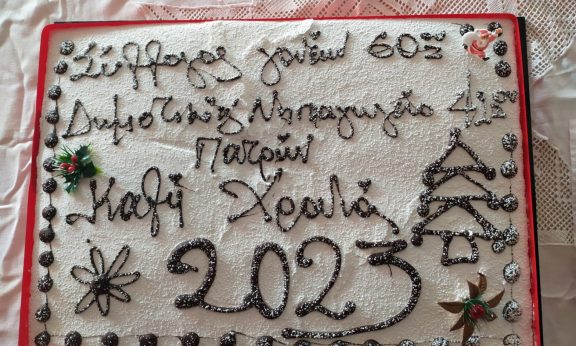 Σύλλογος γονέων 60ου
Δημοτικού Νηπαγωγείο 41ου
Πατρών
Καλή Χρονιά
2023